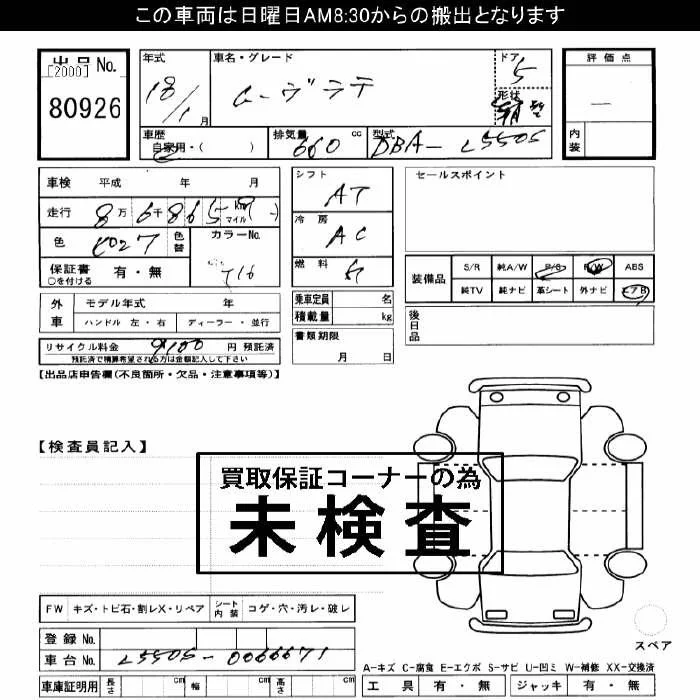 この車両は日曜日AM8:30からの搬出となります
出品No.
[2000]
80926
年式
18/1月
車名・グレード
ムーヴラテ
ドア
5
形状
評価点
内装
車歴
自家用・( )
排気量
660 cc
型式
DBA-L550S
車検 平成 年 月
走行 8万6千865 km マイル
色
色替
カラーNo.
T16
保証書
○を付ける
有・無
シフト
AT
冷房
AC
燃料
乗車定員 名
積載量 kg
書類期限
月 日
セールスポイント
装備品
S/R 純A/W P/S P/W ABS
純TV 純ナビ 革シート 外ナビ エアB
後日品
外車
モデル年式 年
ハンドル 左・右 ディーラー・並行
リサイクル料金 9100 円 預託済
預託済で精算希望される方は金額記入して下さい
【出品店申告欄(不良箇所・欠品・注意事項等)】
【検査員記入】
買取保証コーナーの為
未検査
FW キズ・トビ石・割レX・リペア シート内装 コゲ・穴・汚レ・破レ
登録No.
車台No. L550S-0066671
車庫証明用 長さ cm 幅 cm 高さ cm
スペア
A-キズ C-腐食 E-エクボ S-サビ U-凹ミ W-補修 XX-交換済
工具 有・無 ジャッキ 有・無